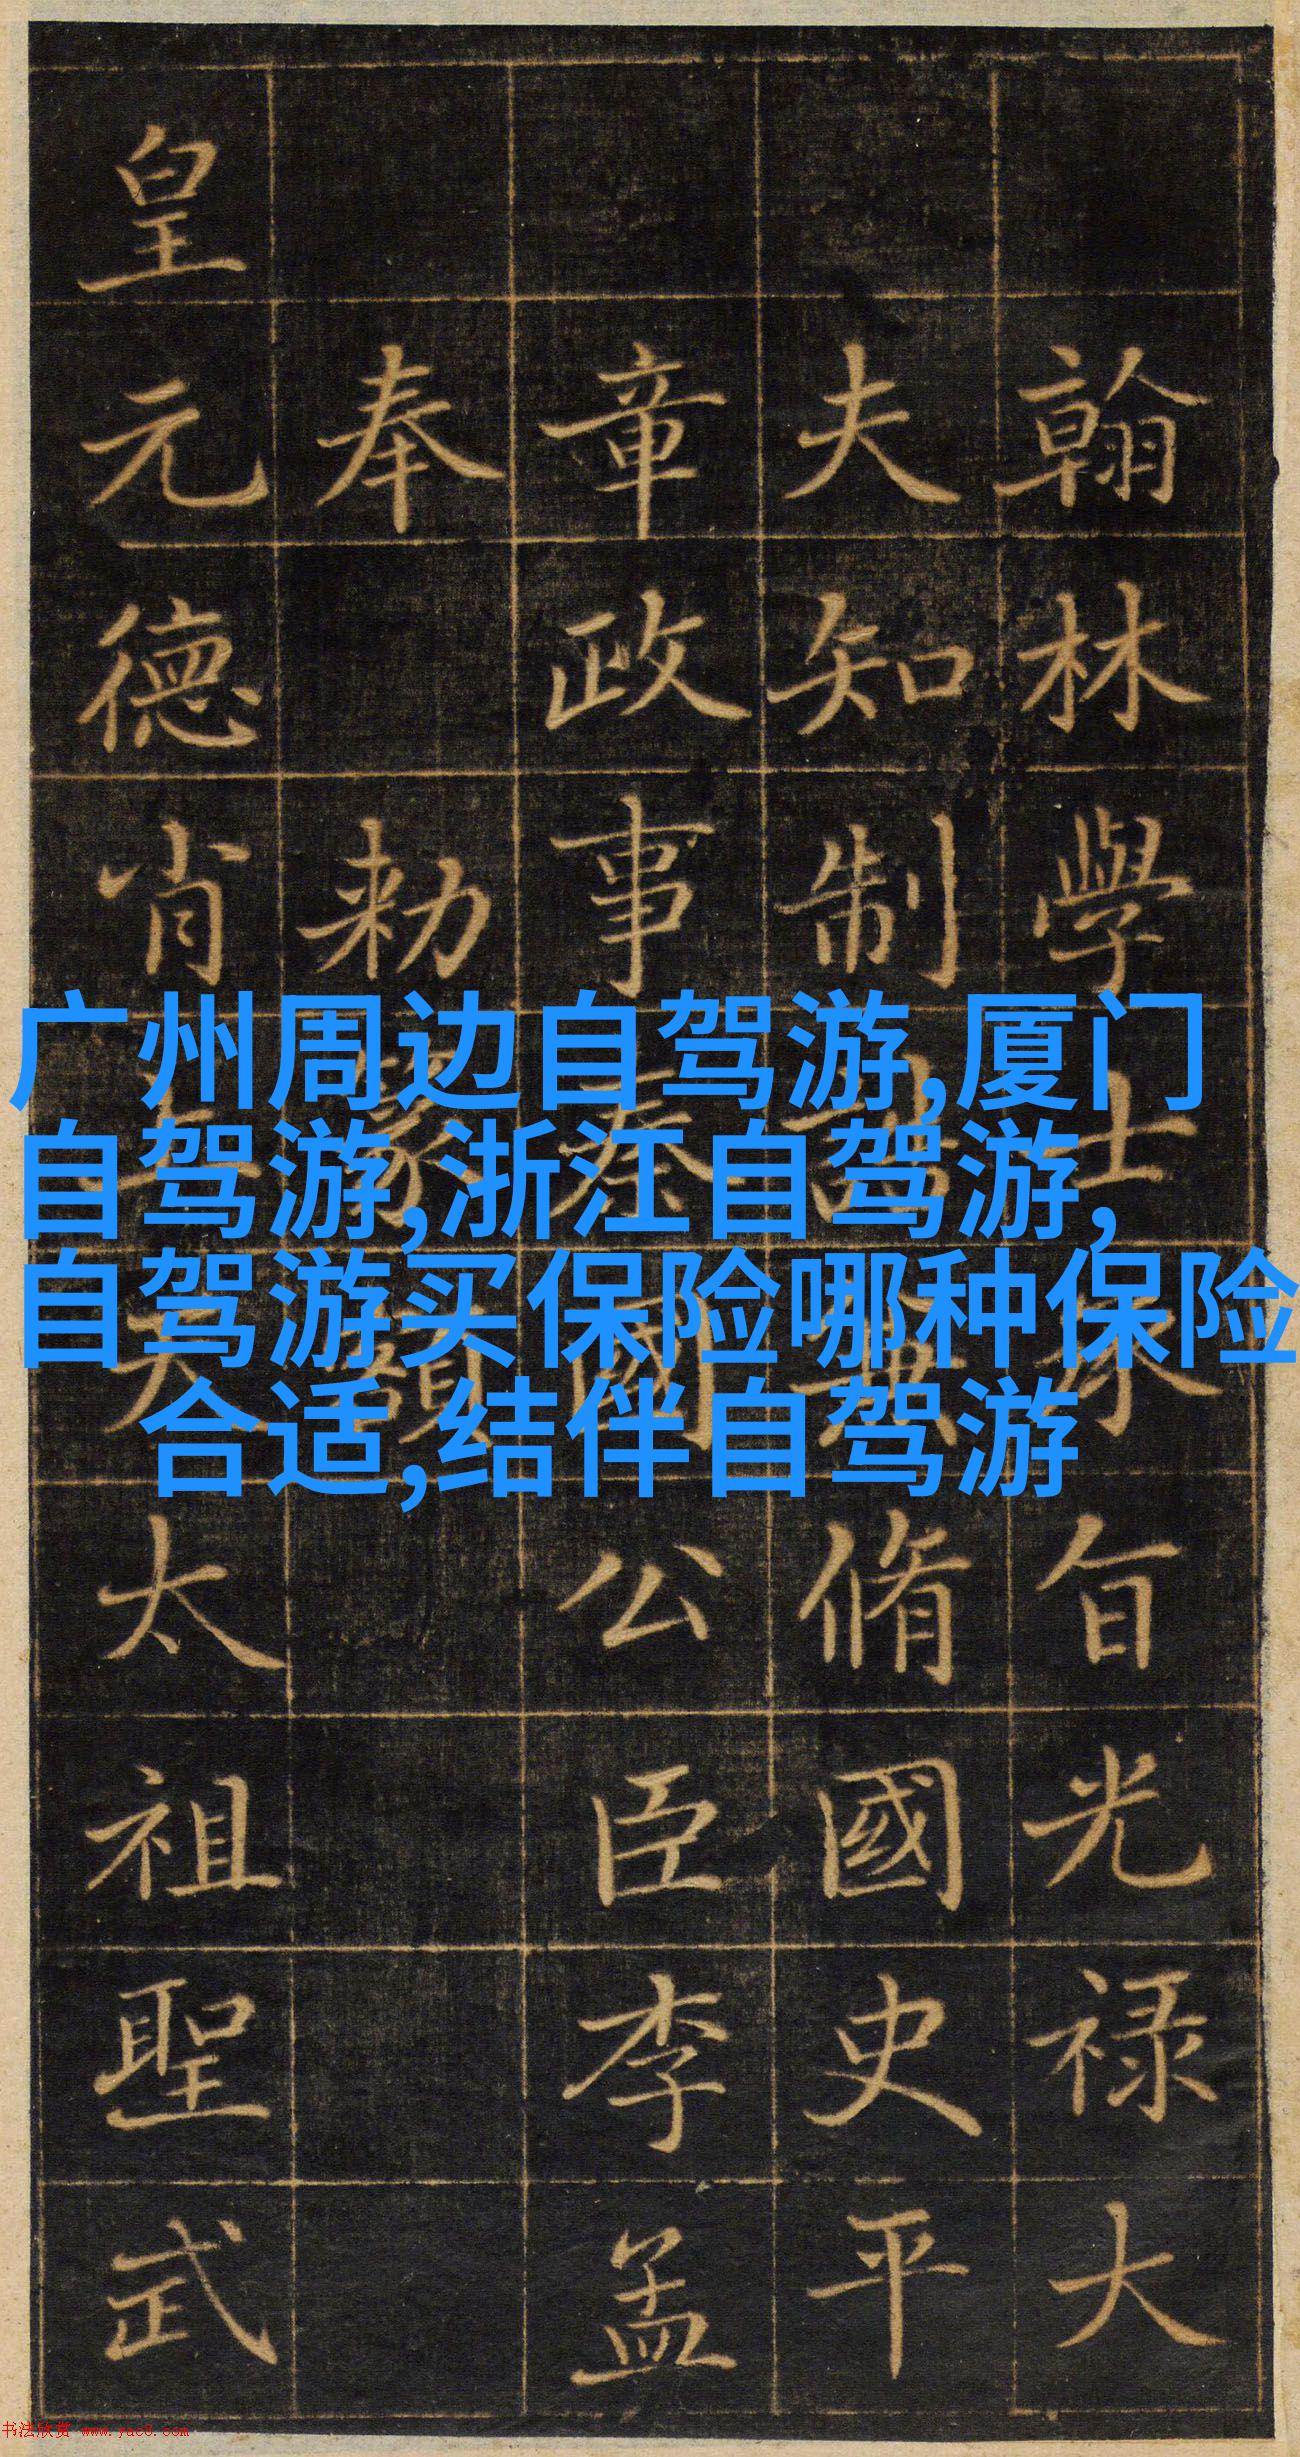 翰林學士承旨光禄大
夫知制誥兼脩國史平
章政事秦國公臣李孟
奉 勑篆額
皇元德肖上天太祖聖武
广州周边自驾游,厦门
自驾游,浙江自驾游,
自驾游买保险哪种保险
合适,结伴自驾游
书法欣赏 www.yac8.com